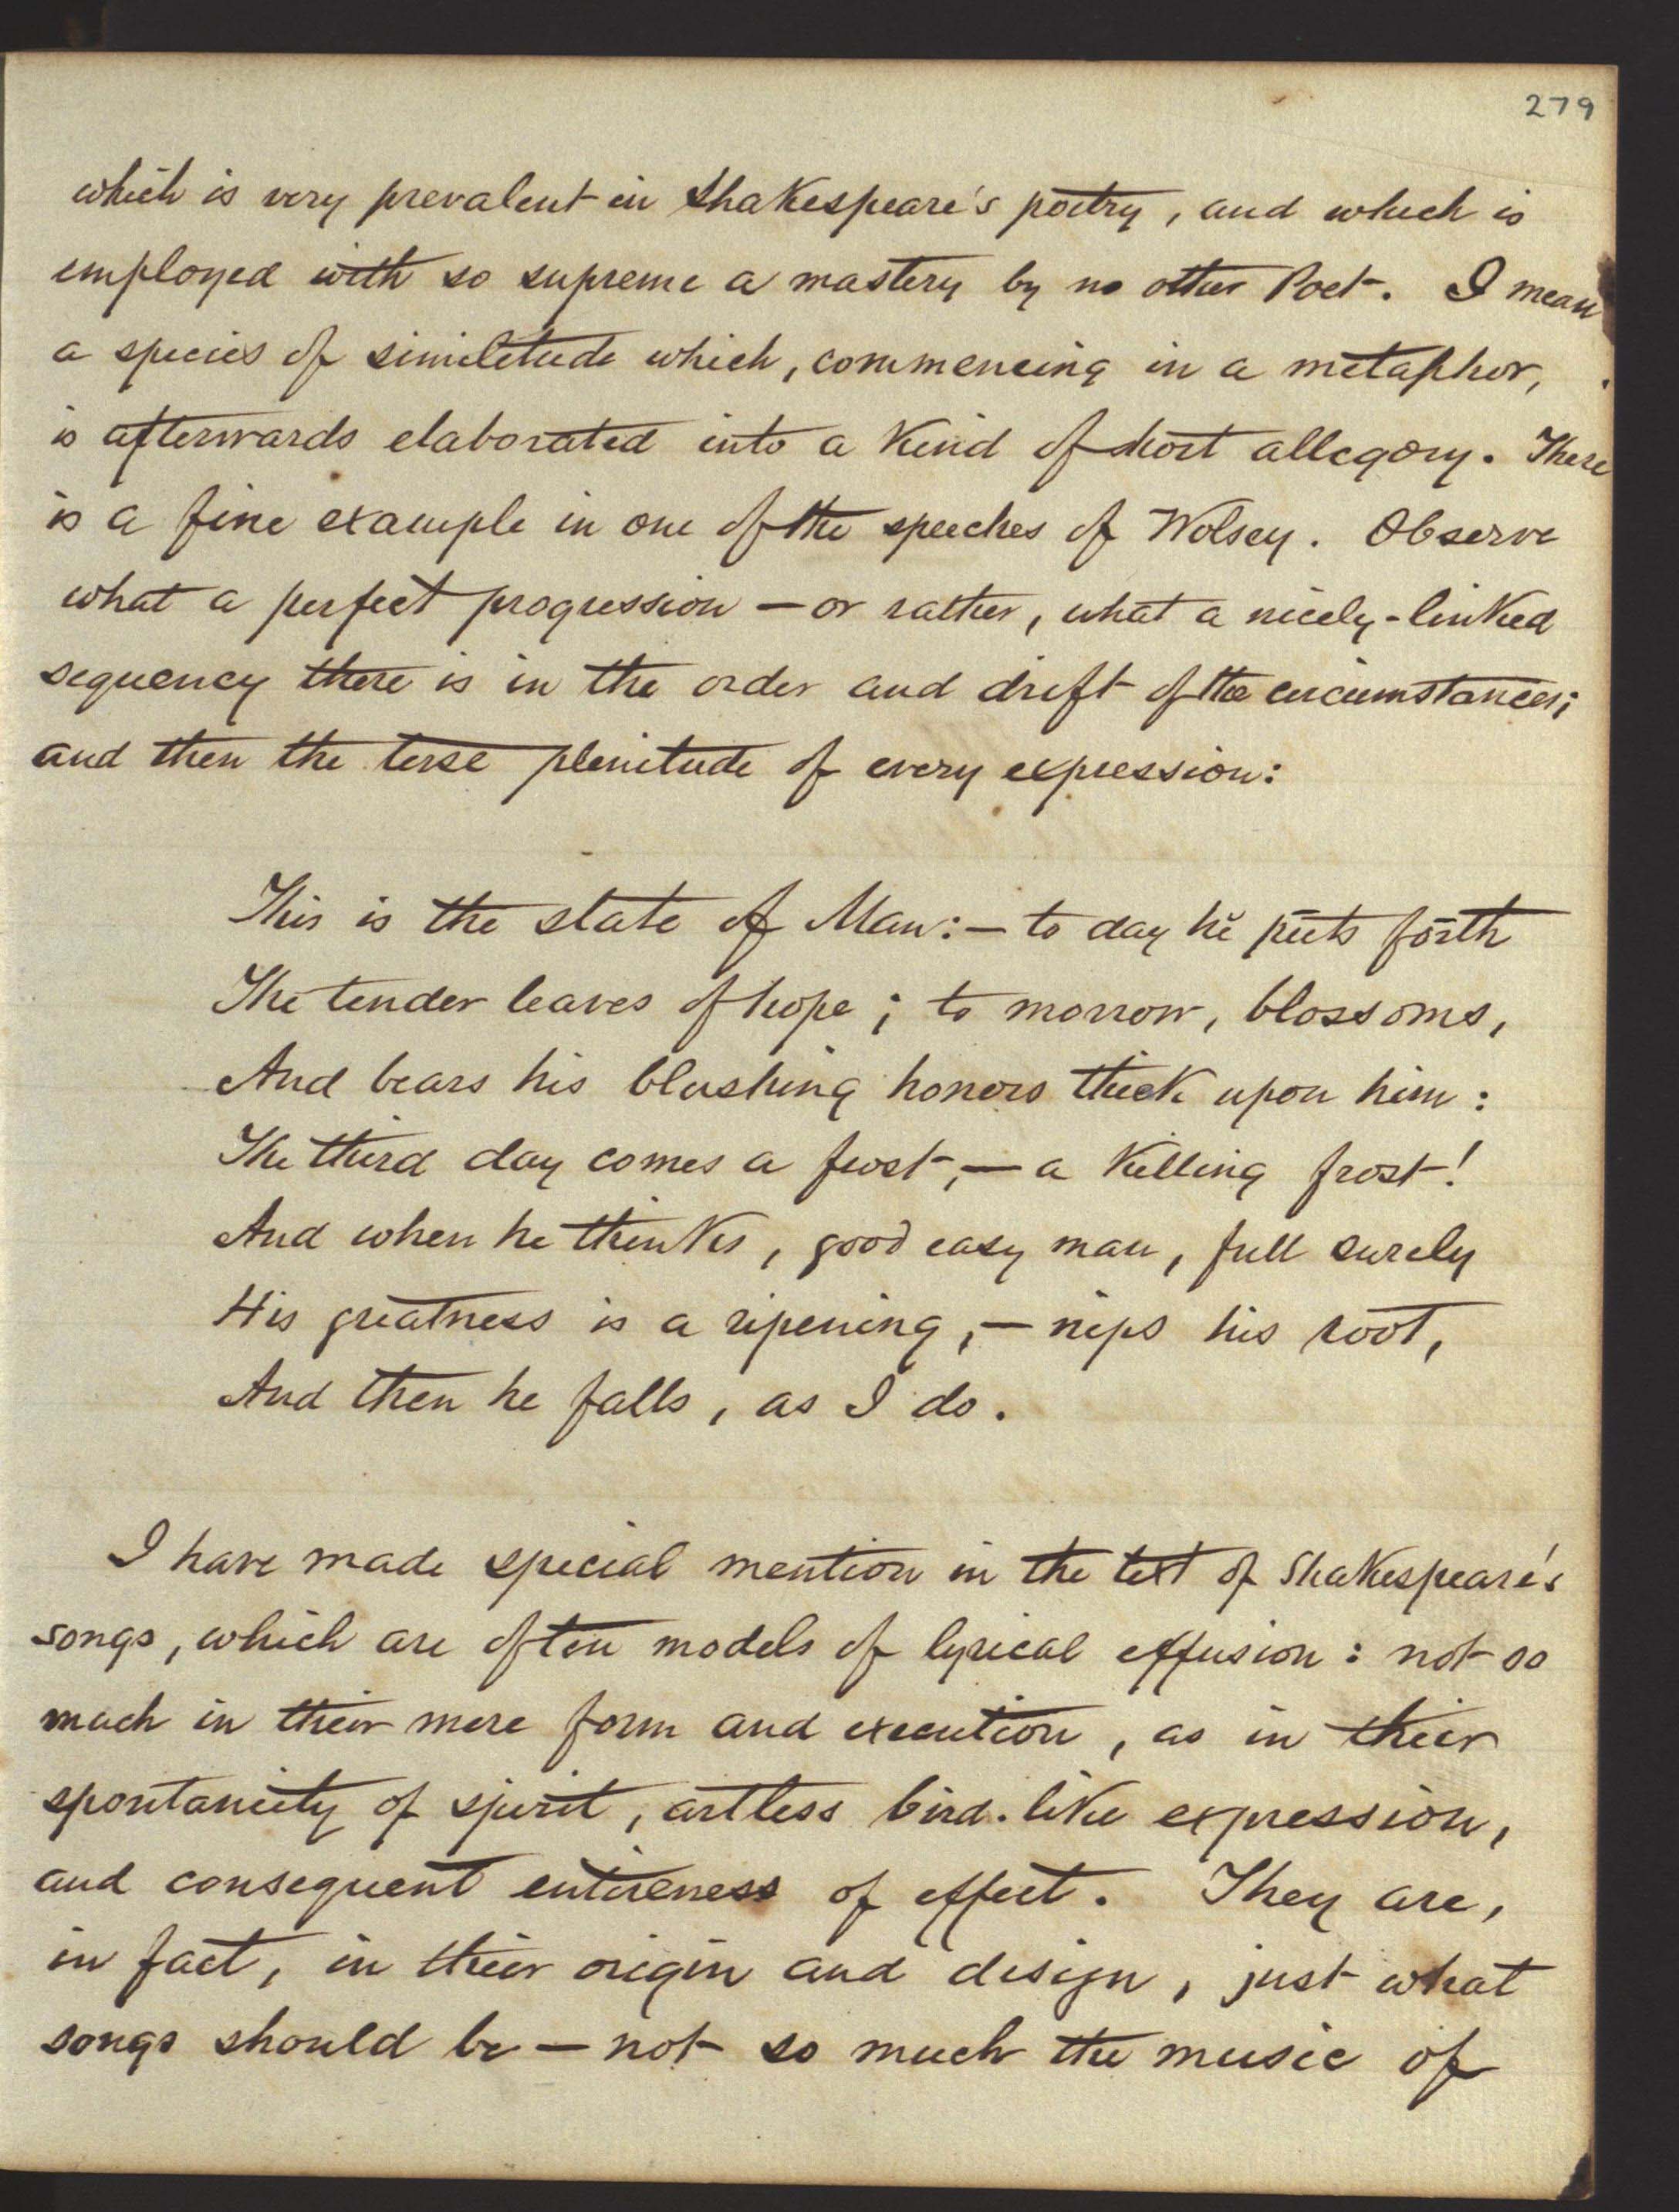 279
which is very prevalent in Shakespeare's poetry, and which is
employed with so supreme a mastery by no other Poet. I mean
a species of similitude which, commencing in a metaphor,
is afterwards elaborated into a kind of short allegory. There
is a fine example in one of the speeches of Wolsey. Observe
what a perfect progression — or rather, what a nicely-linked
sequency there is in the order and drift of the circumstances;
and then the terse plenitude of every expression:
This is the state of Man: — to day hĕ pūts fōrth
The tender leaves of hope; to morrow, blossoms,
And bears his blushing honors thick upon him:
The third day comes a frost, — a killing frost!
And when he thinks, good easy man, full surely
His greatness is a ripening, — nips his root,
And then he falls, as I do.
I have made special mention in the text of Shakespeare's
songs, which are often models of lyrical effusion: not so
much in their mere form and execution, as in their
spontaniety of spirit, artless bird-like expression,
and consequent entireness of effect. They are,
in fact, in their origin and design, just what
songs should be — not so much the music of